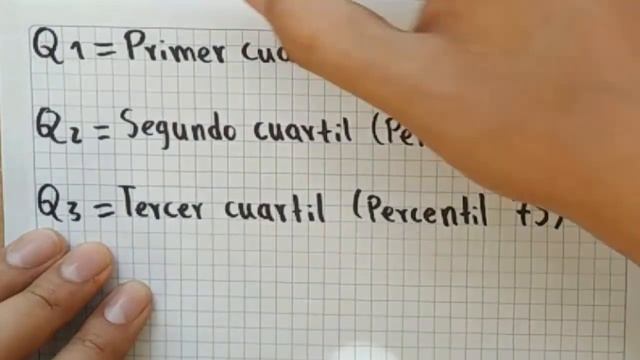 Q1 = Primer
Q2 = Segundo cuartil
Q3 = Tercer cuartil (Percentil